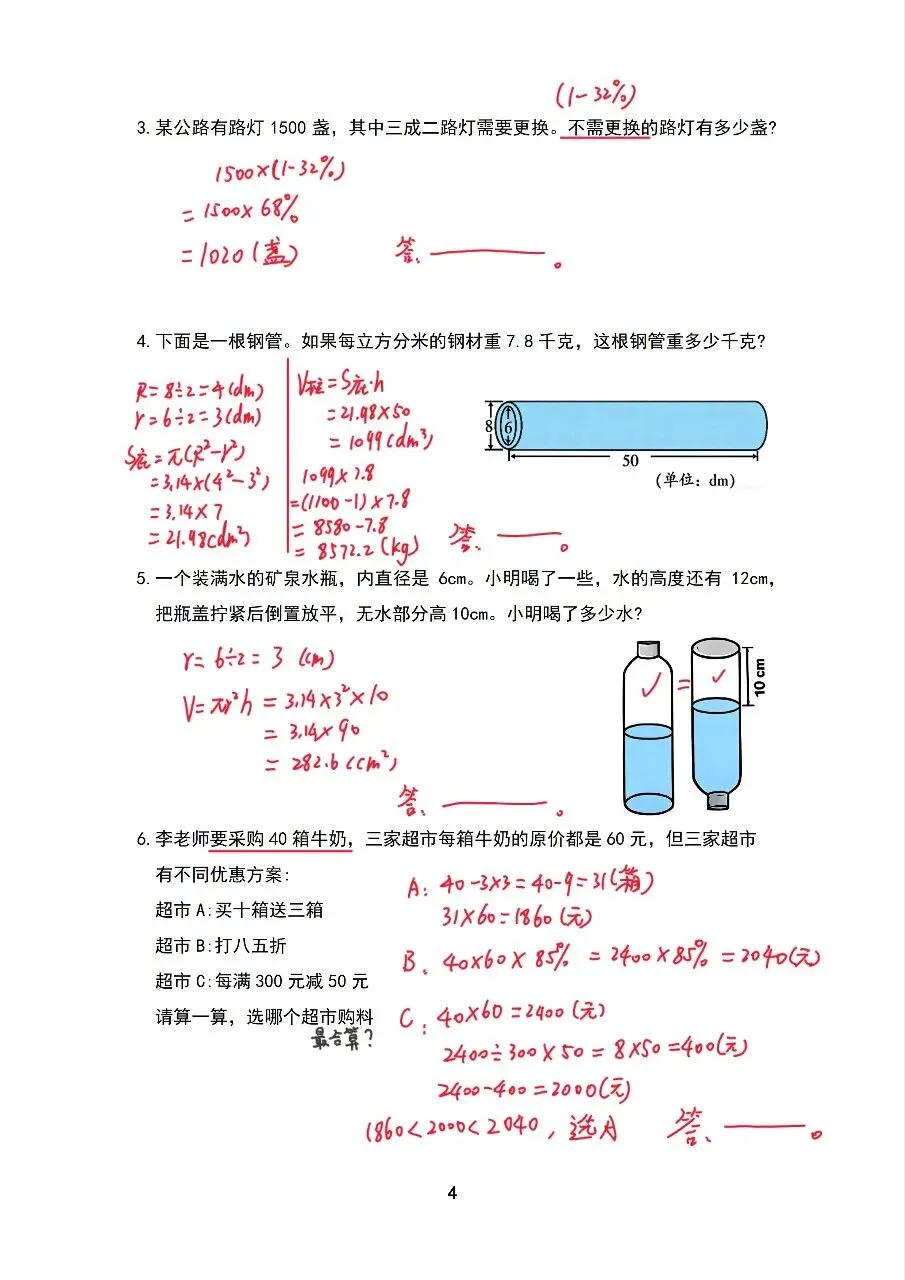 (1-32%)
3. 某公路有路灯 1500 盏，其中三成二路灯需要更换。不需更换的路灯有多少盏?
1500×(1-32%)
=1500×68%
=1020(盏)
答、 。
4. 下面是一根钢管。如果每立方分米的钢材重 7.8 千克，这根钢管重多少千克?
R=8÷2=4(dm)
r=6÷2=3(dm)
S底=π(R²-r²)
=3.14×(4²-3²)
=3.14×7
=21.98(dm²)
V柱=S底·h
=21.98×50
=1099(dm³)
1099×7.8
=(1100-1)×7.8
=8580-7.8
=8572.2(kg)
答、 。
8
6
50
(单位: dm)
5. 一个装满水的矿泉水瓶，内直径是 6cm。小明喝了一些，水的高度还有 12cm，
把瓶盖拧紧后倒置放平，无水部分高10cm。小明喝了多少水?
r=6÷2=3(cm)
V=πr²h=3.14×3²×10
=3.14×90
=282.6(cm²)
答、 。
=
10 cm
6. 李老师要采购 40 箱牛奶，三家超市每箱牛奶的原价都是 60 元，但三家超市
有不同优惠方案:
超市 A:买十箱送三箱
超市 B:打八五折
超市 C:每满 300 元减 50 元
请算一算，选哪个超市购料
最合算?
A: 40-3×3=40-9=31(箱)
31×60=1860(元)
B、40×60×85%=2400×85%=2040(元)
C: 40×60=2400(元)
2400÷300×50=8×50=400(元)
2400-400=2000(元)
1860<2000<2040，选A
答、 。
4